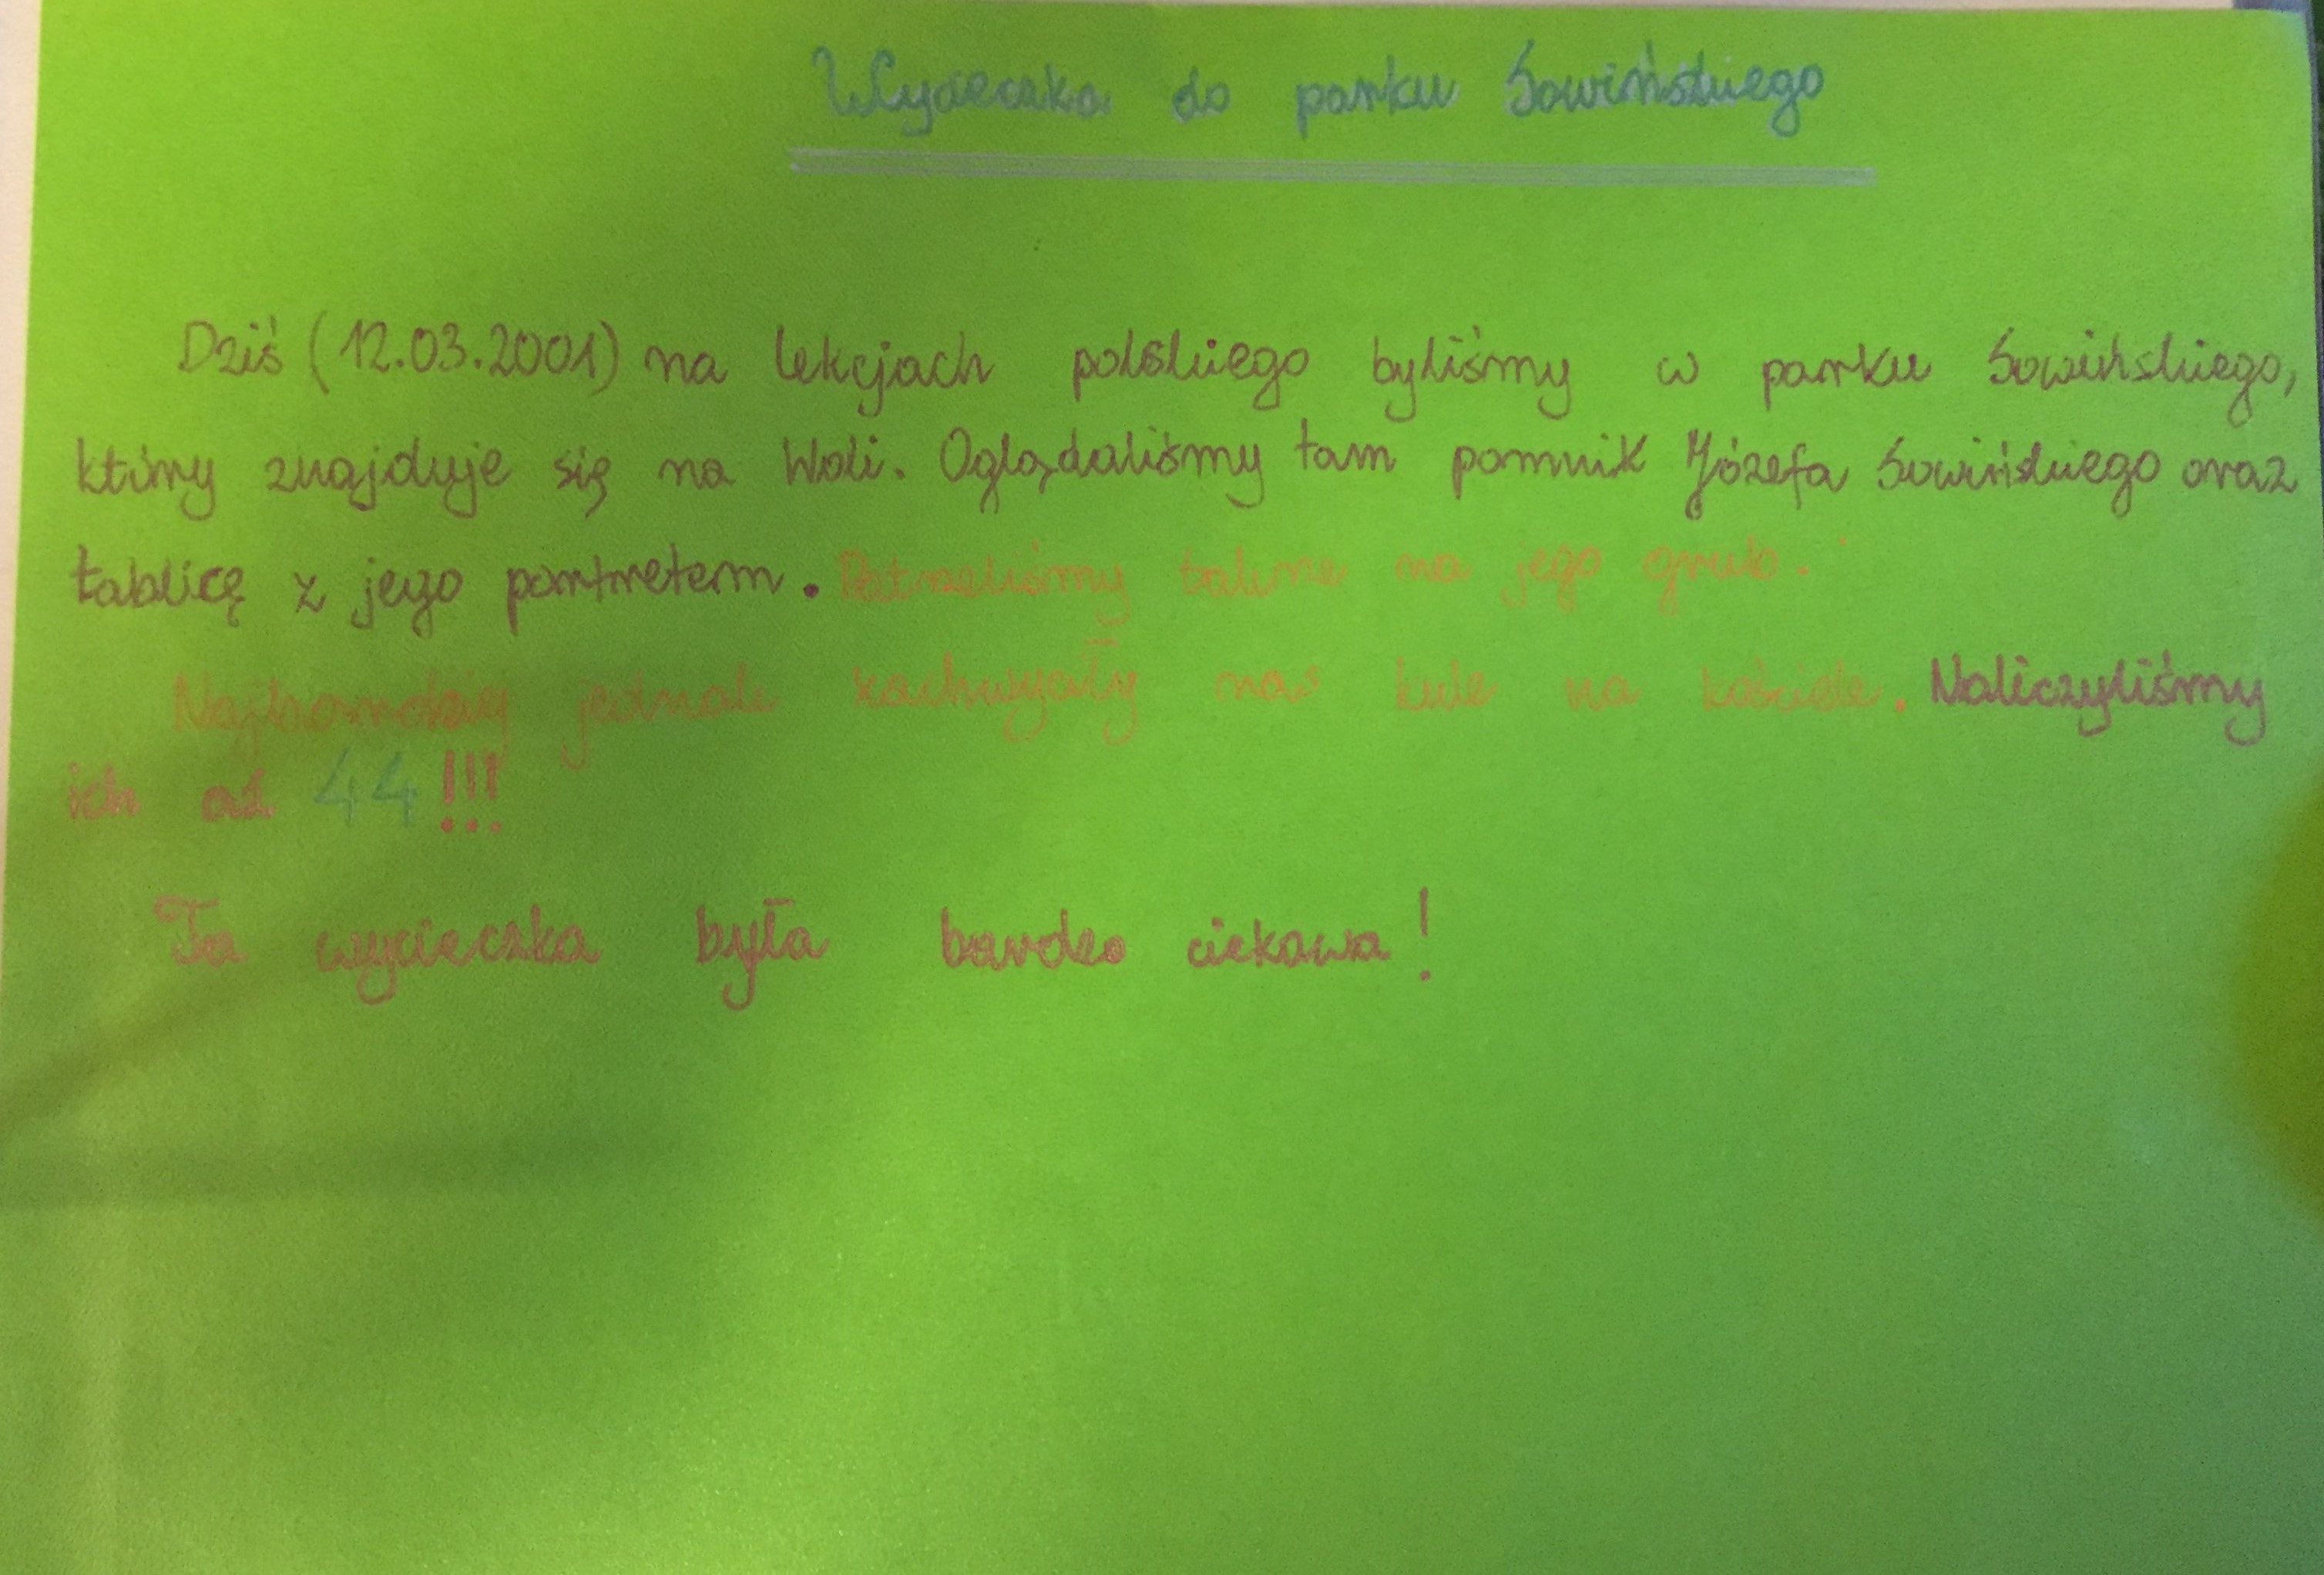 Wycieczka do parku Sowińskiego
Dziś (12.03.2001) na lekcjach polskiego byliśmy w parku Sowińskiego,
który znajduje się na Woli. Oglądaliśmy tam pomnik Józefa Sowińskiego oraz
tablicę z jego portretem. Patrzeliśmy także na jego grub.
Najbardziej jednak zachwyały nas kule na kościele. Naliczyliśmy
ich aż 44!!!
Ta wycieczka była bardzo ciekawa!